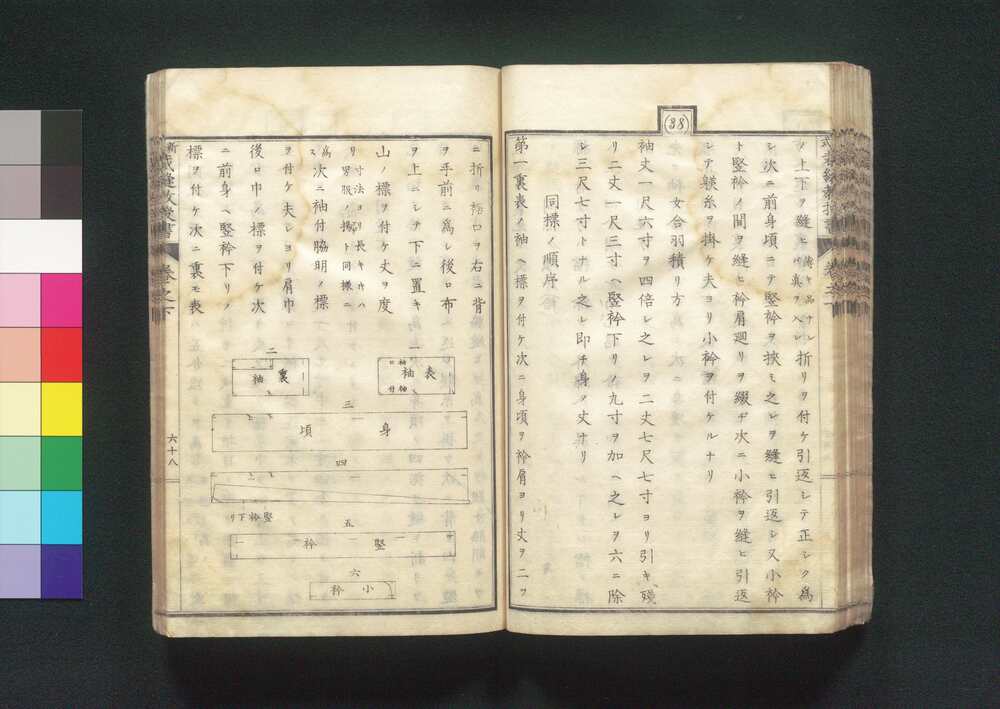 38
ノ上下ヲ縫ヒ
折リヲ付ケ引返シテ正シク爲
シ次ニ前身頃ニテ竪衿ヲ挾ミ之レヲ縫ヒ引返シ又小衿
ト竪衿ノ間ヲ縫ヒ衿肩廻リヲ綴ヂ次ニ小衿ヲ縫ヒ引返
シテ躾糸ヲ掛ケ夫ヨリ小衿ヲ付ケルナリ
女合羽積リ方
袖丈一尺六寸ヲ四倍シ之レヲ二丈七尺七寸ヨリ引キ殘
リ二丈一尺三寸ヘ竪衿下リノ九寸ヲ加ヘ之レヲ六ニ除
シ三尺七寸トナル之レ即チ身ノ丈ナリ
同標ノ順序
第一裏表ノ袖ヘ標ヲ付ケ次ニ身頃ヲ衿肩ヨリ丈ヲ二ツ
ニ折リ裾口ヲ右ニ背
ヲ手前ニ爲シ後ロ布
ヲ上ニシテ下ニ置キ
山ノ標ヲ付ケ丈ヲ度
リ
寸法ヨリ長キハ
男張ノ揚ト同樣ニ
爲ス
次ニ袖付脇明ノ標
ヲ付ケ夫レヨリ肩巾
後ロ巾ノ標ヲ付ケ次
ニ前身ヘ竪衿下リノ
標ヲ付ケ次ニ裏モ表
一
表袖
袖口
袖付
二
裏袖
三
身頃
四
竪衿下リ
五
竪衿
六
小衿
裁縫教授書
卷之下
六十八